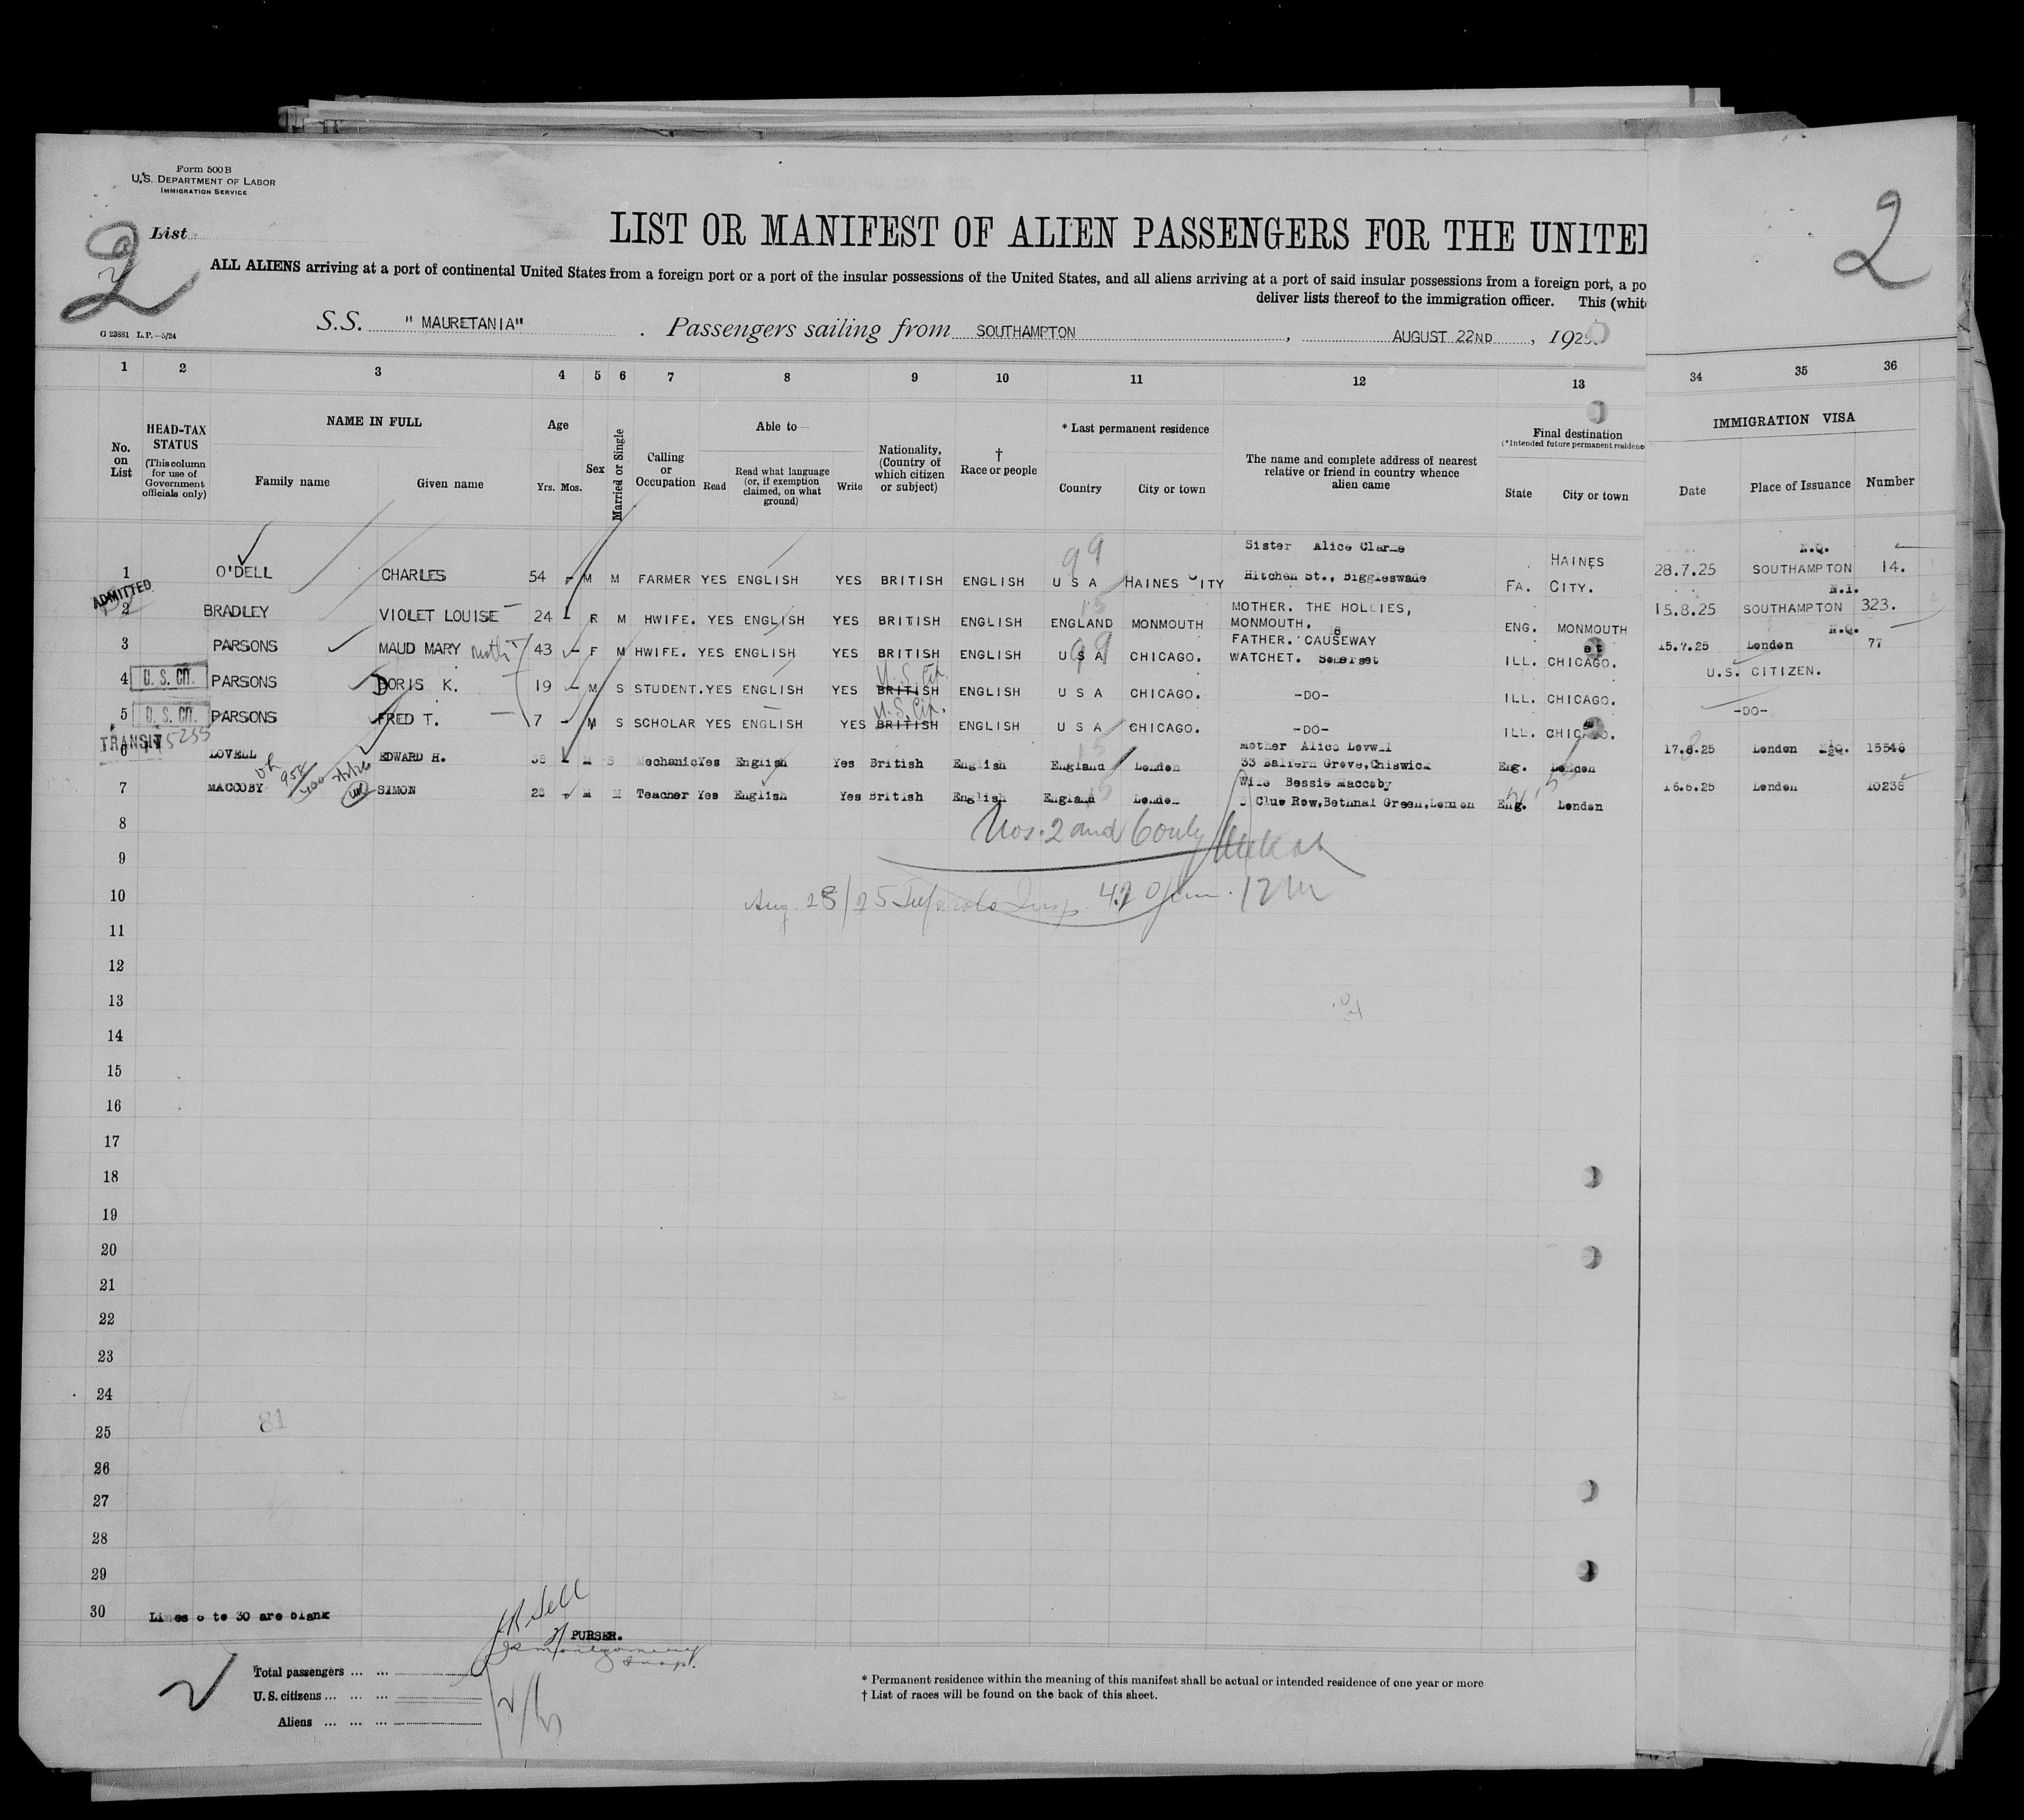 Form 500 B
U.S. DEPARTMENT OF LABOR
IMMIGRATION SERVICE
2
List
2
LIST OR MANIFEST OF ALIEN PASSENGERS FOR THE UNITE
ALL ALIENS arriving at a port of continental United States from a foreign port or a port of the insular possessions of the United States, and all aliens arriving at a port of said insular possessions from a foreign port, a po
deliver lists thereof to the immigration officer. This (whit
G 23881 L.P.—5/24
S.S. "MAURETANIA". Passengers sailing from SOUTHAMPTON, AUGUST 22ND, 192
1 2 3 4 5 6 7 8 9 10 11 12 13 34 35 36
No. on List
HEAD-TAX STATUS (This column for use of Government officials only)
NAME IN FULL
Family name Given name
Age
Yrs. Mos.
Sex
Married or Single
Calling or Occupation
Able to
Read
Read what language (or, if exemption claimed, on what ground)
Write
Nationality, (Country of which citizen or subject)
† Race or people
* Last permanent residence
Country City or town
The name and complete address of nearest relative or friend in country whence alien came
Final destination
(*Intended future permanent residence
State City or town
IMMIGRATION VISA
Date Place of Issuance Number
99 Sister Alice Clarke HAINES N.Q.
1 O'DELL CHARLES 54 M M FARMER YES ENGLISH YES BRITISH ENGLISH U S A HAINES CITY Hitchen St., Biggleswade FA. CITY. 28.7.25 SOUTHAMPTON 14.
ADMITTED
15 MOTHER. THE HOLLIES, N.I.
2 BRADLEY VIOLET LOUISE 24 F M HWIFE. YES ENGLISH YES BRITISH ENGLISH ENGLAND MONMOUTH MONMOUTH. ENG. MONMOUTH 15.8.25 SOUTHAMPTON 323.
99 FATHER. CAUSEWAY N.Q.
3 PARSONS MAUD MARY 43 F M HWIFE. YES ENGLISH YES BRITISH ENGLISH U S A CHICAGO. WATCHET. Somerset ILL. CHICAGO. 15.7.25 London 77
U.S. Cit.
4 U. S. CIT. PARSONS DORIS K. 19 M S STUDENT. YES ENGLISH YES BRITISH ENGLISH U S A CHICAGO. -DO- ILL. CHICAGO. U.S. CITIZEN.
U.S. Cit.
5 U. S. CIT. PARSONS FRED T. 7 M S SCHOLAR YES ENGLISH YES BRITISH ENGLISH U S A CHICAGO. -DO- ILL. CHICAGO. -DO-
TRANSIT
15 Mother Alice Lovell
6 LOVELL EDWARD H. M S Mechanic Yes English Yes British English England London 33 Balfern Grove, Chiswick Eng. London 17.8.25 London 15546
15 Wife Bessie Maccoby
7 MACCOBY SIMON M M Teacher Yes English Yes British English England London Clue Row, Bethnal Green, London Eng. London 16.6.25 London 10238
8
Nos. 2 and 6 only
9
10 Aug. 28/25
11
12
13
14
15
16
17
18
19
20
21
22
23
24
25
81
26
27
28
29
30 Lines 8 to 30 are blank
PURSER.
Total passengers ... ...
U. S. citizens ... ... ...
Aliens ... ... ...
* Permanent residence within the meaning of this manifest shall be actual or intended residence of one year or more
† List of races will be found on the back of this sheet.